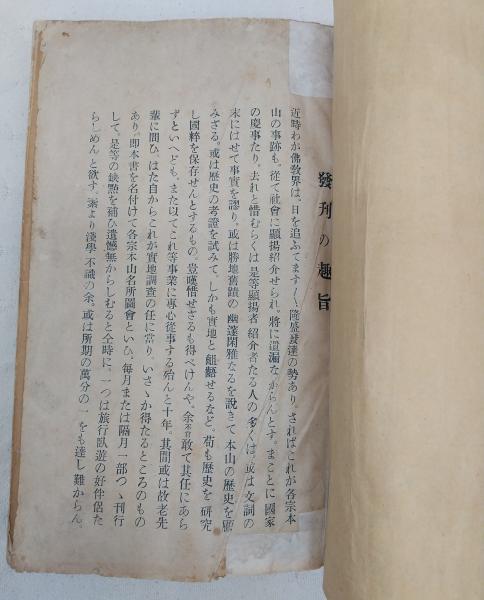 發刊の趣旨
近時わが佛敎界は、日を追ふてます〱隆盛發達の勢あり。さればこれが各宗本
山の事跡も、從て社會に顯揚紹介せられ。將に遺漏なからんとす。まことに國家
の慶事たり。去れと惜むらくは是等顯揚者紹介者たる人の多くは。或は文詞の
末にはせて事實を謬り。或は勝地舊蹟の幽邃閑雅なるを說きて本山の歷史を顧
みざる。或は歷史の考證を試みて。しかも實地と齟齬せるなど。苟も歷史を硏究
し國粹を保存せんとするもの。豈嘆惜せさるも得べけんや。余不肖敢て其任にあら
ずといへども。また以てこれ等事業に專心從事する殆んと十年。其間或は故老先
輩に問ひ。はた自からこれが實地調査の任に當り。いさゝか得たるところのもの
あり。即本書を名付けて各宗本山名所圖會といひ。每月または隔月一部つゝ刊行
して。是等の缺點を補ひ遺憾無からしむると仝時に。一つは旅行臥遊の好伴侶た
らしめんと欲す。素より淺學不識の余。或は所期の萬分の一をも達し難からん。